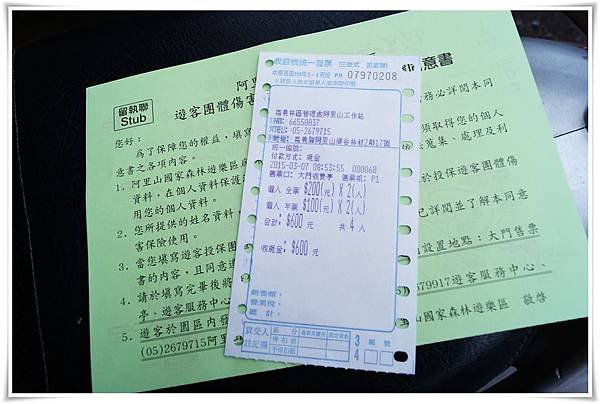 收銀機統一發票 (三聯式 扣抵聯)
中華民國104年3-4月份 PH 07970208
嘉義林區管理處阿里山工作站
66550837
TEL:05-2679715
嘉義縣阿里山鄉
統一編號:
付款方式: 現金
2015-03-07 08:53:55 000068
售票口: 大門收費亭 售票機: P1
個人 全票 $200(元) X 2(人)
個人 半票 $100(元) X 2(人)
合計: $600 元 共 4 人
收現金: $600 元
銷售額:
營業稅:
總計:
買受人
註記欄
區分
進貨及費用
固定資產
得扣抵
不得扣抵
3
4
留執聯
Stub
阿里
遊客團體傷害
您好:
為了保障您的權益,填寫
意書之各項內容。
1. 阿里山國家森林遊樂區
資料,在個人資料保護
用您的個人資料。
2. 您所提供的姓名資料,
害保險使用。
3. 當您填寫遊客投保團
書的內容,且同意遵
4. 請於填寫完畢後將
亭、遊客服務中心、
5. 遊客於園區內發
(05)2679715阿里
意書
務必詳閱本同
須取得您的個人
蒐集、處理及利
於投保遊客團體傷
已詳閱並了解本同意
設置地點:大門售票
679917遊客服務中心、
山國家森林遊樂區 敬啓